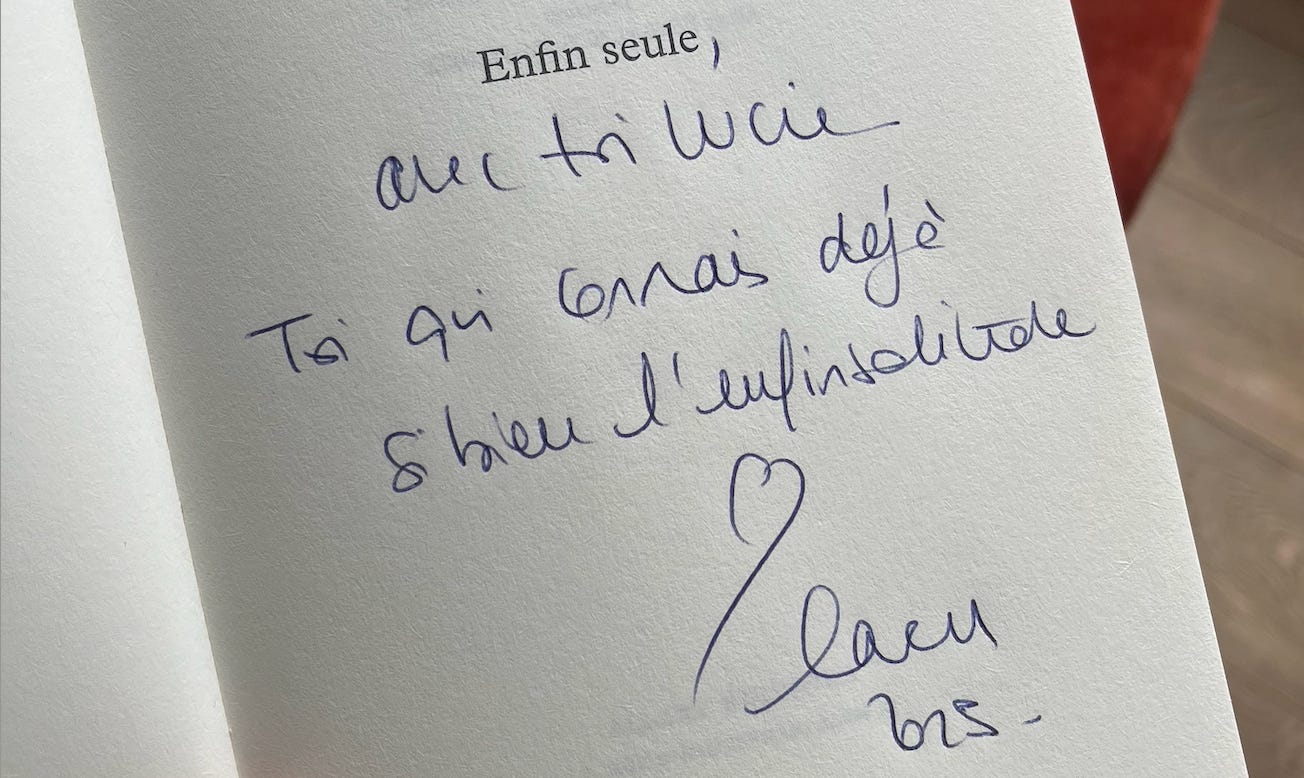 Enfin seule,
avec toi Lucie
Toi qui connais déjà
si bien l'enfinsolitude
2025 -